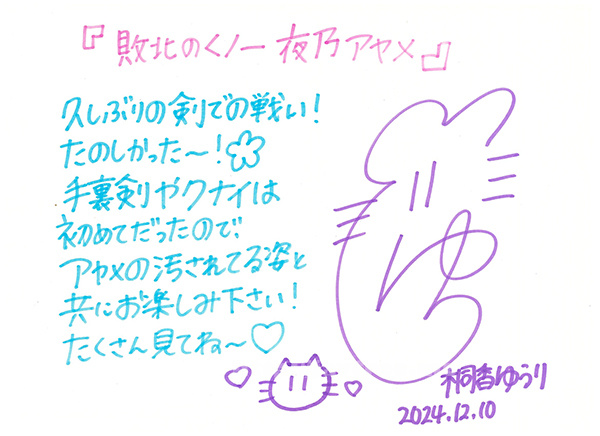 『敗北のくノ一 夜乃アヤメ』
久しぶりの剣での戦い！
たのしかった～！
手裏剣やクナイは
初めてだったので、
アヤメの汚されてる姿と
共にお楽しみ下さい！
たくさん見てね～♡
ゆ
桐香ゆうり
2024.12.10